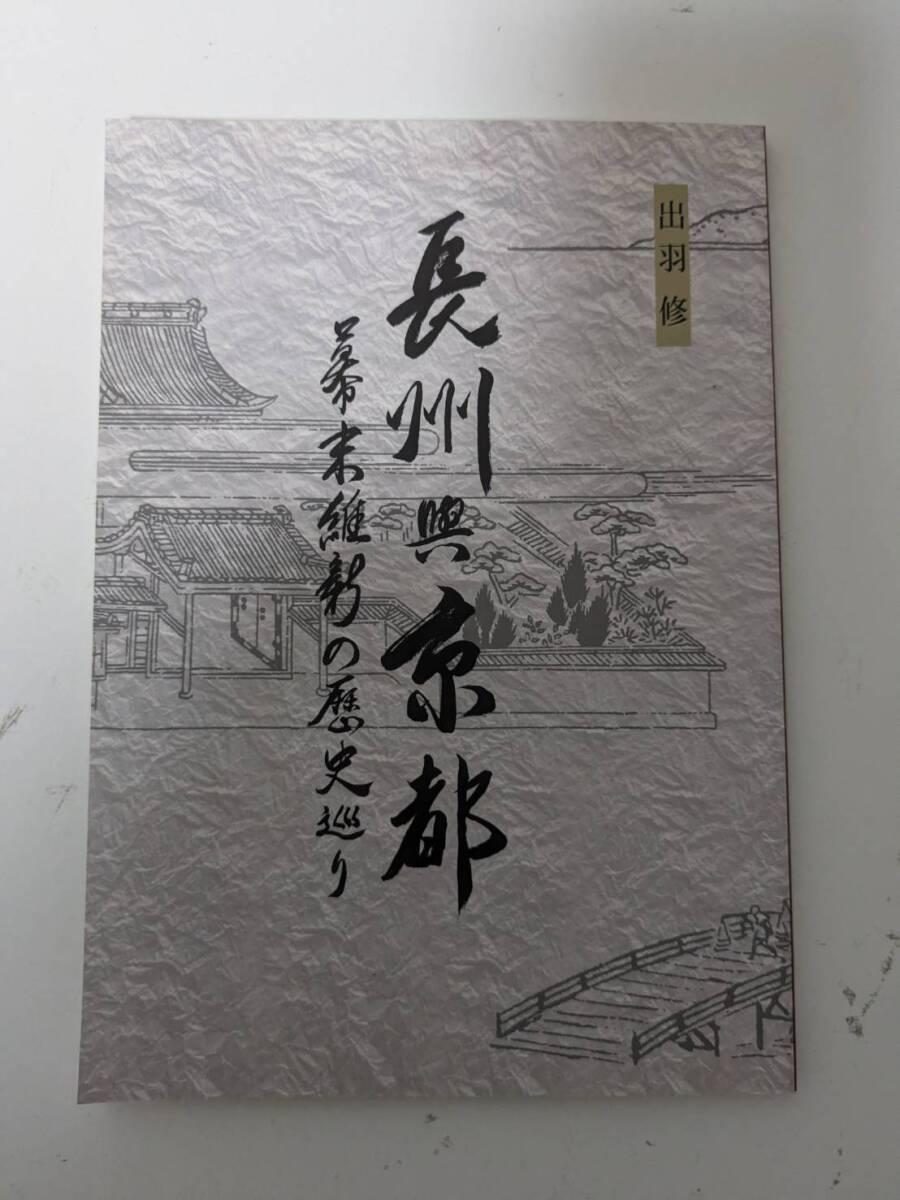 出羽修
長州與京都
幕末維新の歴史巡り